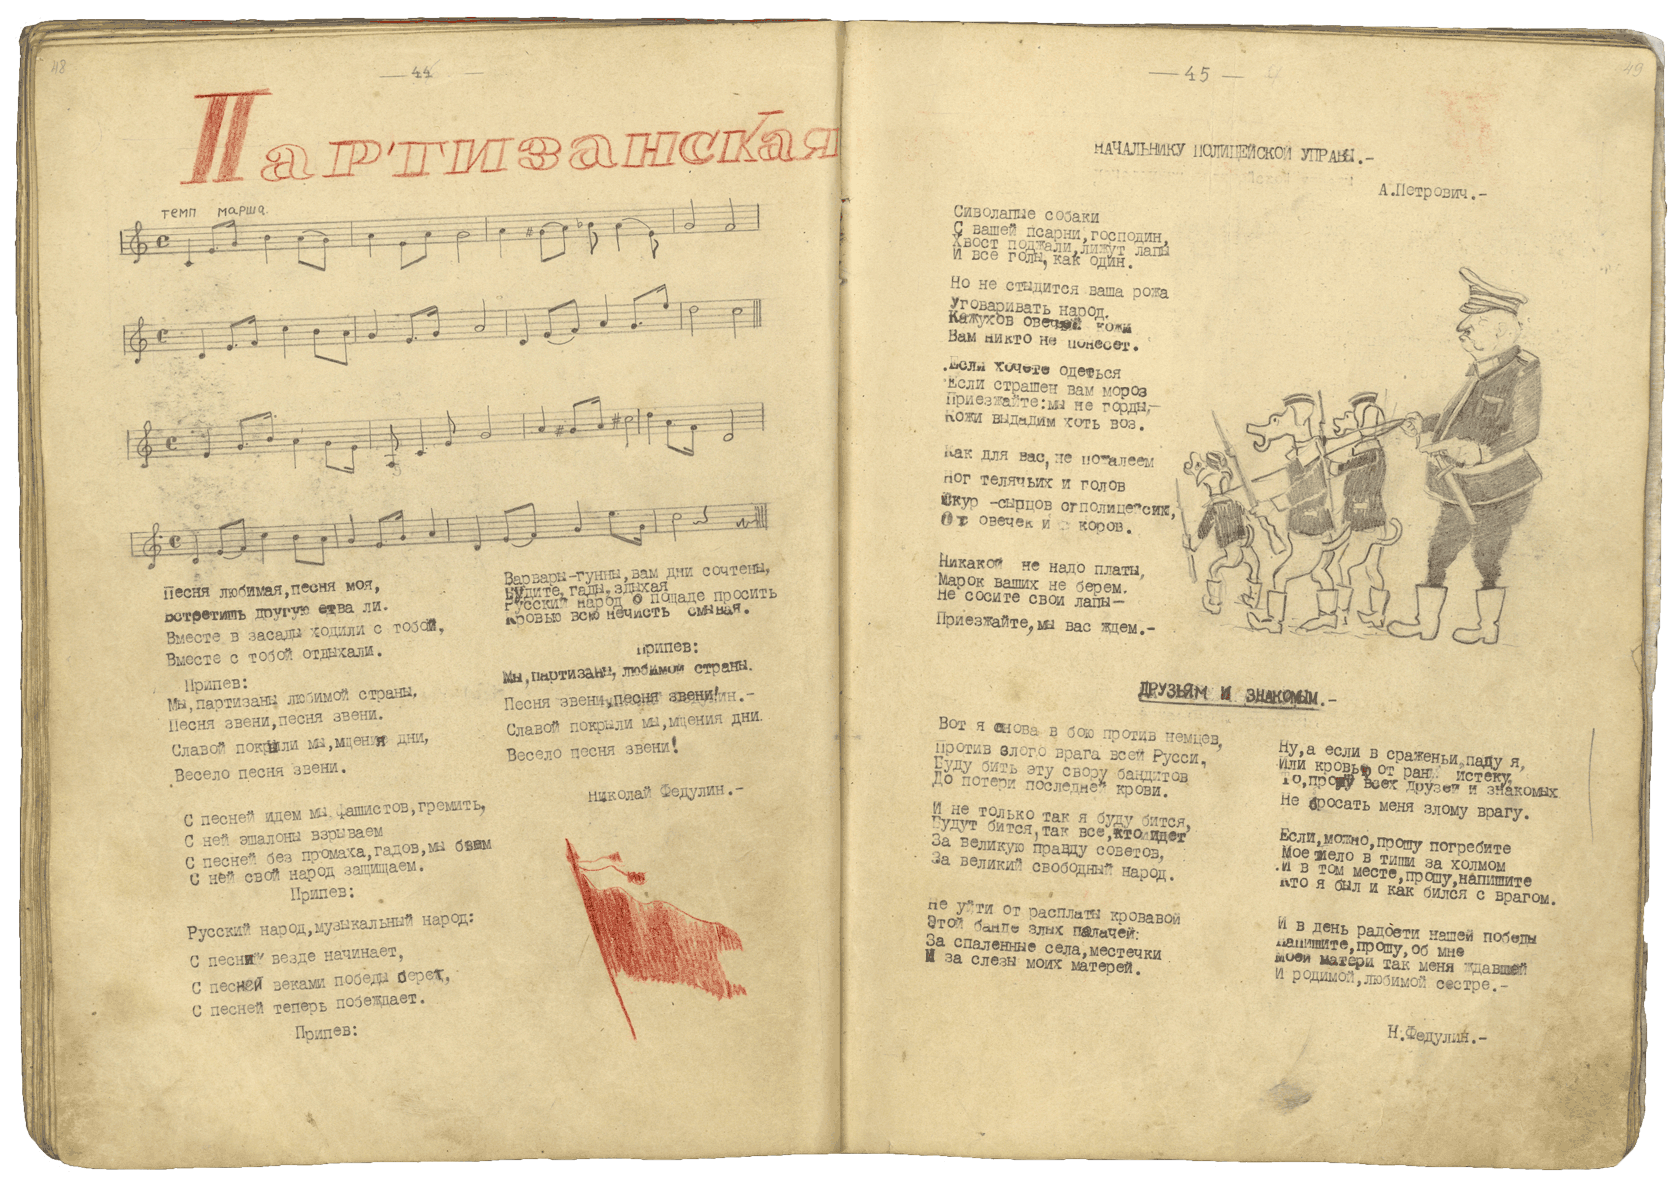 48
— 44 —
Партизанская
темп марша
Песня любимая, песня моя,
Встретишь другую етва ли.
Вместе в засады ходили с тобой,
Вместе с тобой отдыхали.
Припев:
Мы, партизаны любимой страны,
Песня звени, песня звени.
Славой покрыли мы, мщения дни,
Весело песня звени.
С песней идем мы фашистов, гремить,
С ней эшалоны взрываем
С песней без промаха, гадов, мы бьем
С ней свой народ защищаем.
Припев:
Русский народ, музыкальный народ:
С песни везде начинает,
С песней веками победы берет,
С песней теперь побеждает.
Припев:
Варвары-гунны, вам дни сочтены,
Будите, гады, здыхая
Русский народ о пощаде просить
Кровью всю нечисть смывая.
Припев:
Мы, партизаны, любимой страны.
Песня звени, песня звени!
Славой покрыли мы, мщения дни.
Весело песня звени!
Николай Федулин.-
49
— 45 —
НАЧАЛЬНИКУ ПОЛИЦЕЙСКОЙ УПРАВЫ.-
А.Петрович.-
Сиволапые собаки
С вашей псарни, господин,
Хвост поджали, лижут лапы
И все голы, как один.
Но не стыдится ваша рожа
Уговаривать народ.
Кажухов овечей кожи
Вам никто не понесет.
Если хочете одеться
Если страшен вам мороз
Приезжайте: мы не горды,—
Кожи выдадим хоть воз.
Как для вас, не пожалеем
Ног телячьих и голов
Шкур -сырцов отполицейских,
От овечек и коров.
Никакой не надо платы,
Марок ваших не берем.
Не сосите свои лапы—
Приезжайте, мы вас ждем.-
ДРУЗЬЯМ И ЗНАКОМЫМ.-
Вот я снова в бою против немцев,
Против злого врага всей Русси,
Буду бить эту свору бандитов
До потери последней крови.
И не только так я буду бится,
Будут бится, так все, кто идет
За великую правду советов,
За великий свободный народ.
Не уйти от расплаты кровавой
Этой банде злых палачей:
За спаленные села, местечки
И за слезы моих матерей.
Ну, а если в сраженьи паду я,
Или кровью от ран истеку,
То, прошу всех друзей и знакомых
Не бросать меня злому врагу.
Если, можно, прошу погребите
Мое тело в тиши за холмом
И в том месте, прошу, напишите
Кто я был и как бился с врагом.
И в день радости нашей победы
Напишите, прошу, об мне
Моей матери так меня ждавшей
И родимой, любимой сестре.-
Н.Федулин.-